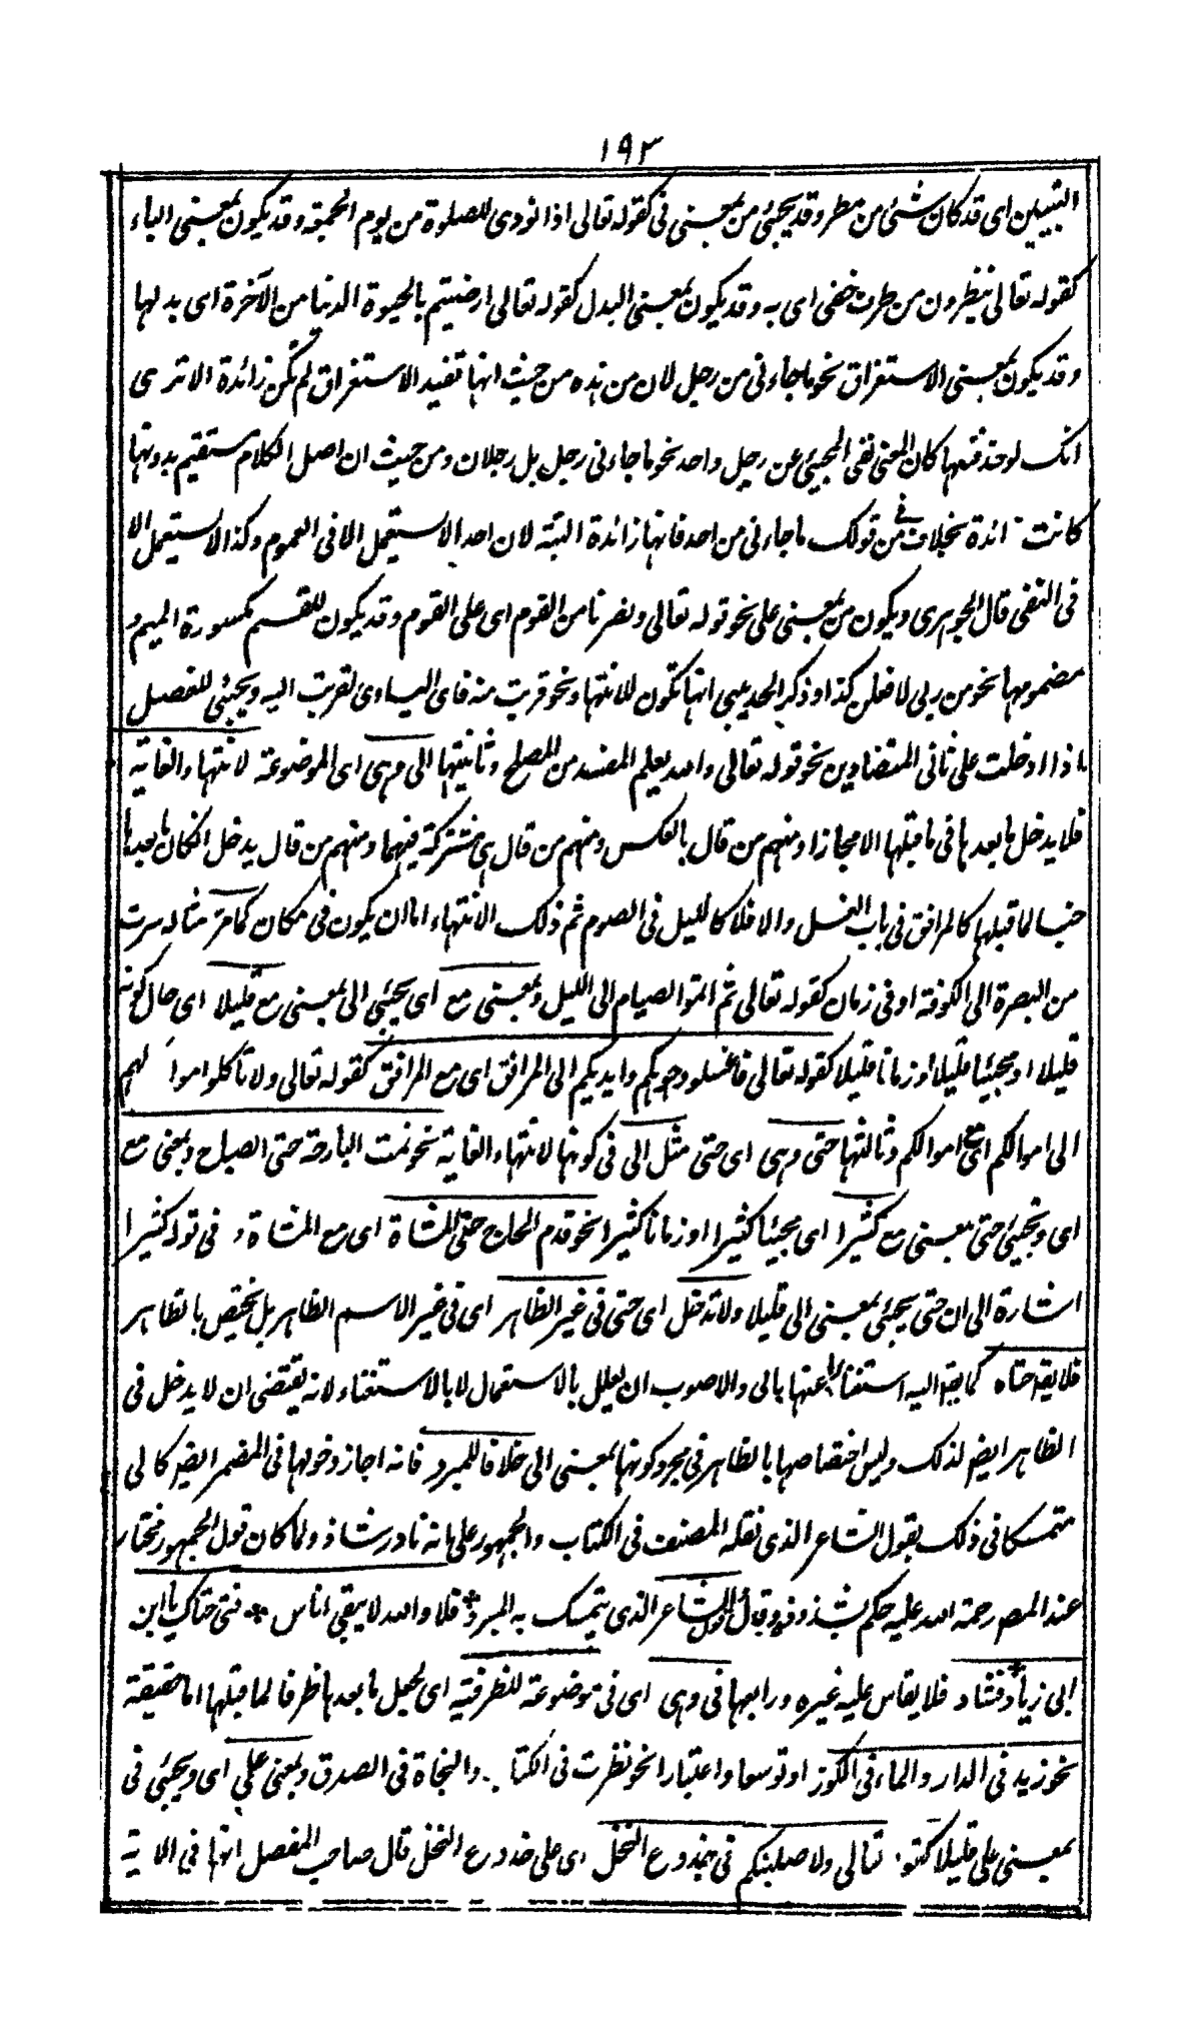 ١٩٣
التبيين اى قد كان شئ من مطر وقد يجئ من بمعنى فى كقوله تعالى اذا نودى للصلوة من يوم الجمعة وقد يكون بمعنى الباء
كقوله تعالى ينظرون من طرف خفى اى به وقد يكون بمعنى البدل كقوله تعالى ارضيتم بالحيوة الدنيا من الآخرة اى بدلها
وقد يكون بمعنى الاستغراق نحو ما جاءنى من رجل لان من هذه من حيث انها تفيد الاستغراق لم تكن زائدة الا ترى
انك لو حذفتها كان المعنى نفى المجيئ عن رجل واحد نحو ما جاءنى رجل بل رجلان ومن حيث ان اصل الكلام مستقيم بدونها
كانت زائدة بخلاف من فى قولك ما جاءنى من احد فانها زائدة البتة لان احد الا يستعمل الا فى العموم وكذا لا يستعمل الا
فى النفى قال الجوهرى ويكون من بمعنى على نحو قوله تعالى ونصرناه من القوم اى على القوم وقد يكون للقسم مكسورة الميم و
مضمومها نحو من ربى لافعلن كذا وذكر الحديبى انها تكون للانتهاء نحو قربت منه فانه يساوى تقربت اليه ويجئ للفصل
اذا ادخلت على ثانى المتضادين نحو قوله تعالى والله يعلم المفسد من المصلح وثانيتها الى وهى اى الموضوعة لانتهاء الغاية
فلا يدخل ما بعدها فى ما قبلها الا مجازا ومنهم من قال بالعكس ومنهم من قال هى مشتركة فيهما ومنهم من قال يدخل انكان ما بعدها
جنسا لما قبلها كالمرافق فى باب الغسل والا فلا كالليل فى الصوم ثم ذلك الانتهاء اما ان يكون فى مكان كما مر مثاله سرت
من البصرة الى الكوفة او فى زمان كقوله تعالى ثم اتموا الصيام الى الليل وبمعنى مع اى يجئ الى بمعنى مع قليلا اى حال كونه
قليلا او مجيئا قليلا او زمانا قليلا كقوله تعالى فاغسلوا وجوهكم وايديكم الى المرافق اى مع المرافق كقوله تعالى ولا تاكلوا اموالهم
الى اموالكم اى مع اموالكم وثالثتها حتى وهى اى حتى مثل الى فى كونها لانتهاء الغاية نحو نمت البارحة حتى الصباح وبمعنى مع
اى ويجئ حتى بمعنى مع كثيرا اى مجيئا كثيرا او زمانا كثيرا نحو قدم الحاج حتى المشاة اى مع المشاة و فى قوله كثيرا
اشارة الى ان حتى يجئ بمعنى الى قليلا ولا تدخل اى حتى فى غير الظاهر اى فى غير الاسم الظاهر بل يختص بالظاهر
فلا يقه حتاه كما يقه اليه استغناء عنها بالى والاصوب ان يعلل بالاستعمال لا بالاستغناء لانه يقتضى ان لا يدخل فى
الظاهر ايضا لذلك وليس اختصاصها بالظاهر فى مجرد كونها بمعنى الى خلافا للمبرد فانه اجاز دخولها فى المضمر ايضا كالى
متمسكا فى ذلك بقول الشاعر الذى نقله المصنف فى الكتاب والجمهور على انه نادر شاذ ولما كان قول الجمهور مختارا
عند المصه رحمة الله عليه حكم بشذوذه وقال قول الشاعر الذى يتمسك به المبرد * فلا والله لا يبقى اناس * فتى حتاك يا ابن
ابى زياد * فشاذ فلا يقاس عليه غيره ورابعها فى وهى اى فى موضوعة للظرفية اى لجعل ما بعدها ظرفا لما قبلها اما حقيقة
نحو زيد فى الدار والماء فى الكوز او توسعا واعتبارا نحو نظرت فى الكتاب والنجاة فى الصدق وبمعنى على اى ويجئ فى
بمعنى على قليلا كقوله تعالى ولاصلبنكم فى جذوع النخل اى على جذوع النخل قال صاحب المفصل انها فى الاية